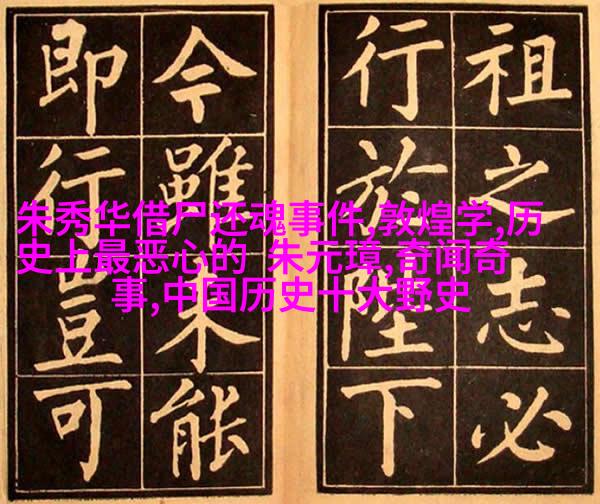 祖之志必
行於陛下
今雖未能
即行豈可
朱秀华借尸还魂事件,敦煌学,历
史上最恶心的 朱元璋,奇闻奇
事,中国历史十大野史